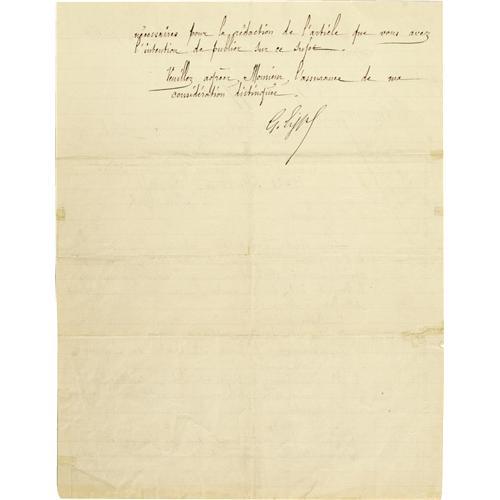 nécessaires pour la rédaction de l'article que vous avez
l'intention de publier sur ce sujet.
Veuillez agréer, Monsieur, l'assurance de ma
considération distinguée.